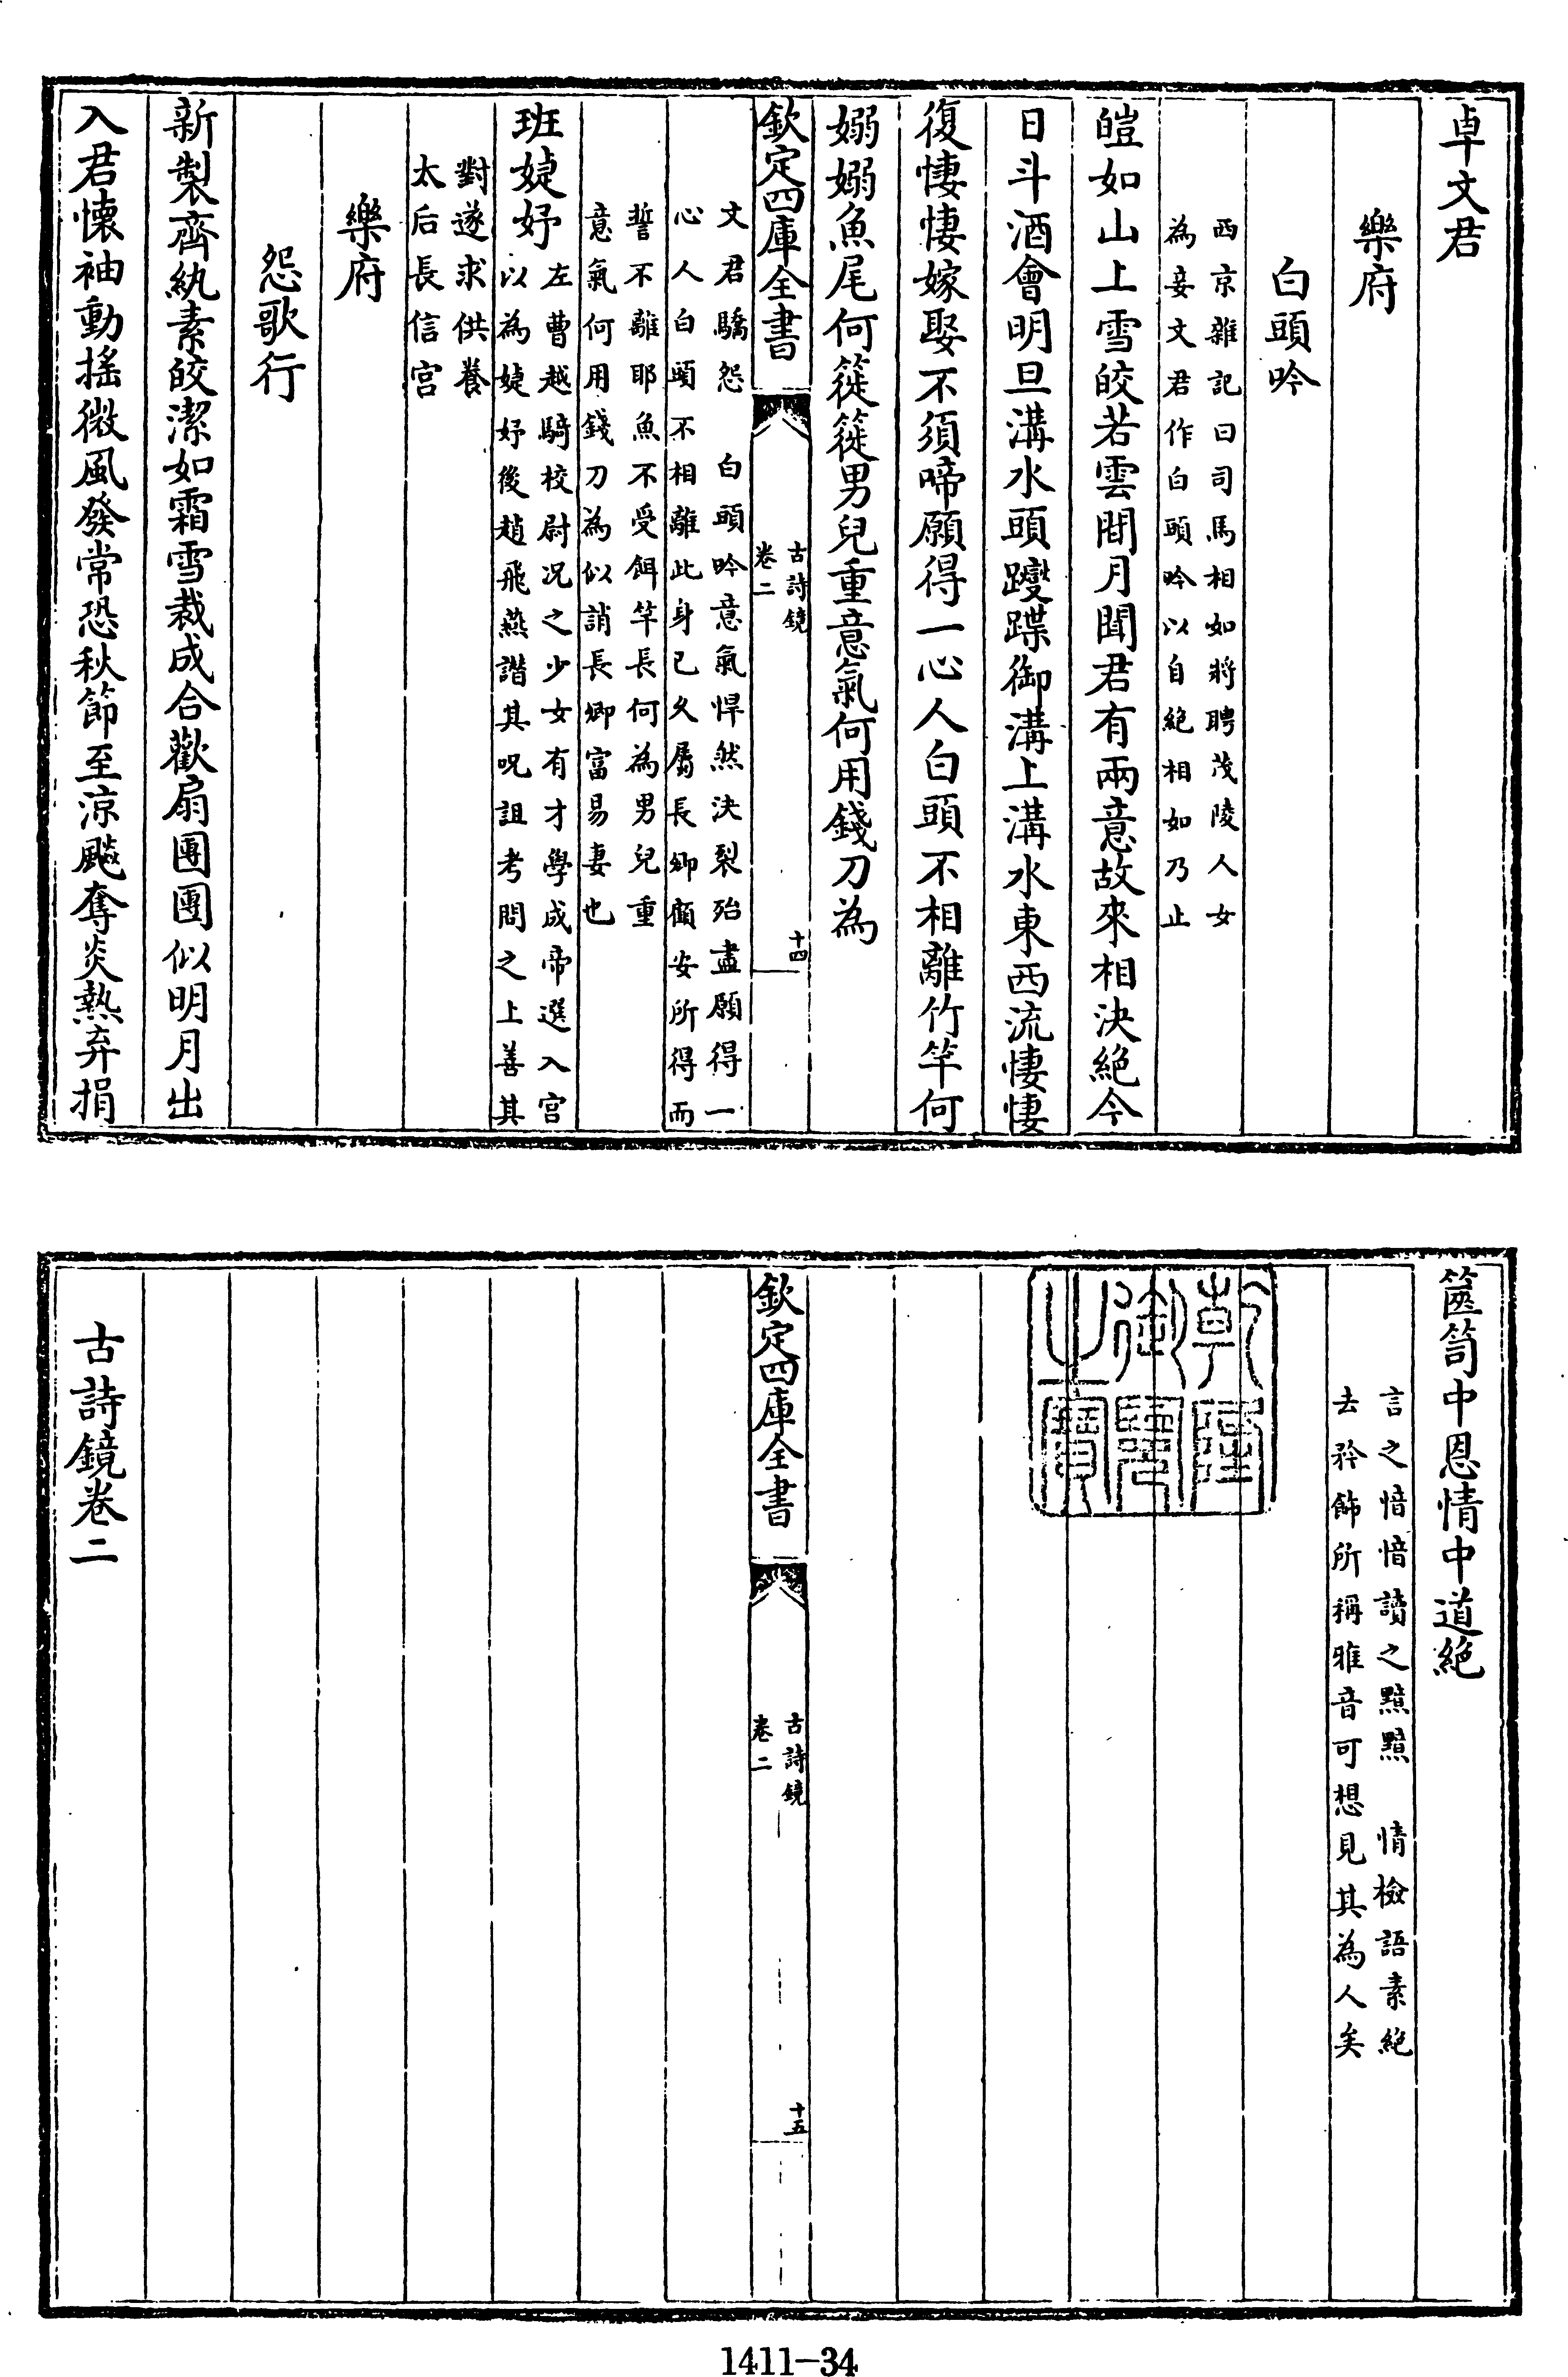 卓文君
樂府
白頭吟
西京雜記曰司馬相如將聘茂陵人女
為妾文君作白頭吟以自絶相如乃止
皚如山上雪皎若雲間月聞君有兩意故來相決絶今
日斗酒會明旦溝水頭躞蹀御溝上溝水東西流悽悽
復悽悽嫁娶不須啼願得一心人白頭不相離竹竿何
嫋嫋魚尾何簁簁男兒重意氣何用錢刀為
欽定四庫全書
古詩鏡
卷二
十四
文君驕怨 白頭吟意氣悍然決裂殆盡願得一
心人白頭不相離此身已久屬長卿顧安所得而
誓不離耶魚不受餌竿長何為男兒重
意氣何用錢刀為似誚長卿富易妻也
班婕妤
左曹越騎校尉况之少女有才學成帝選入宫
以為婕妤後趙飛燕譖其呪詛考問之上善其
對遂求供養
太后長信宫
樂府
怨歌行
新製齊紈素皎潔如霜雪裁成合歡扇團團似明月出
入君懐袖動揺微風發常恐秋節至涼飈奪炎熱弃捐
篋笥中恩情中道絶
言之愔愔讀之黯黯 情檢語素絶
去矜飾所稱雅音可想見其為人矣
乾隆
御覽
之寶
欽定四庫全書
古詩鏡
卷二
十五
古詩鏡卷二
1411-34